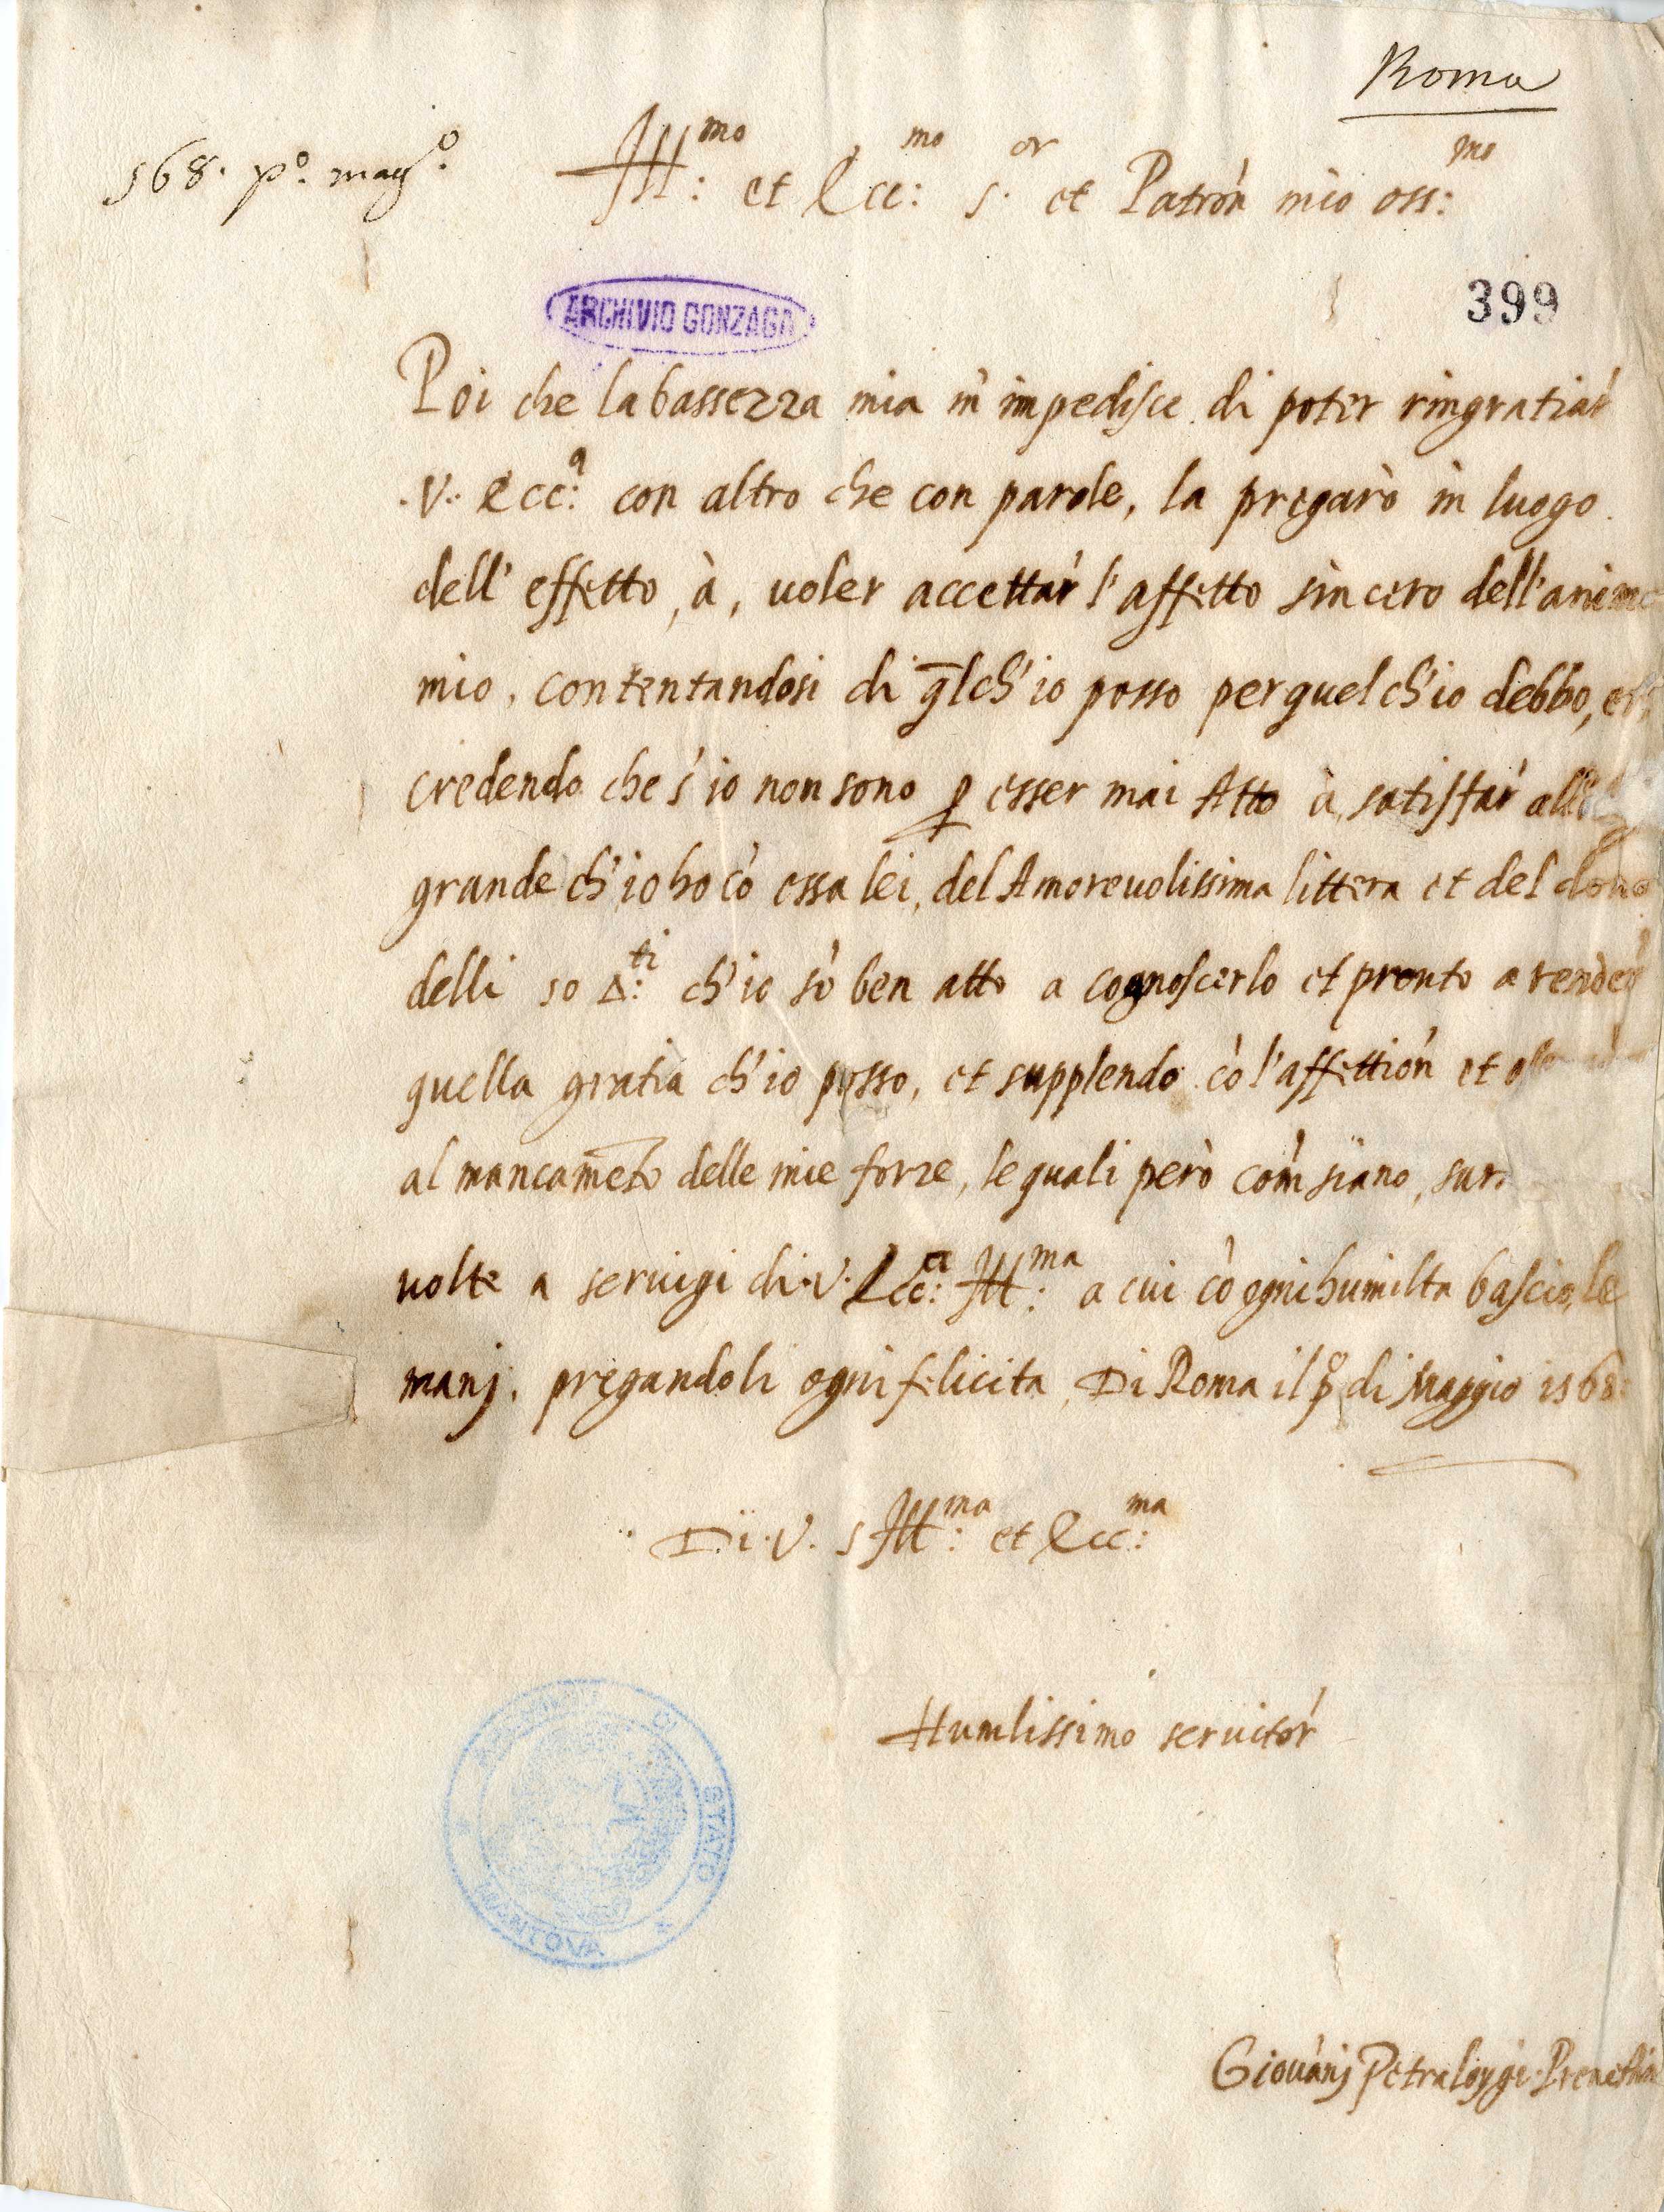 Roma
568. p.º magº.
Ill.mo et Ecc.mo S.or et Patron mio oss.mo
ARCHIVIO GONZAGA
399
Poi che la bassezza mia m'impedisce di poter ringratiar
.V. Ecc.a con altro che con parole, la pregarò in luogo
dell'effetto, à, uoler accettar l'affetto sincero dell'animo
mio, contentandosi di q̄l ch'io posso per quel ch'io debbo, et
credendo che s'io non sono ꝑ esser mai Atto à, satisffar
grande ch'io ho cō essa lei, del Amoreuolissima littera et del dono
delli 50 Δ.ti ch'io sō ben atto a cognoscerlo et pronto a render
quella gratia ch'io posso, et supplendo cō l'affettion et
al mancamēto delle mie forze, le quali però com siano,
uolte a seruigi di .V. Ecc.a Ill.ma a cui cō ogni humilta bascio, le
manj. pregandoli ogni felicita, Di Roma il pº di Maggio 1568
Di .V. S Ill.ma et Ecc.ma
Humlissimo seruitor
ARCHIVIO DI STATO MANTOVA
Giouānj Petraloysi